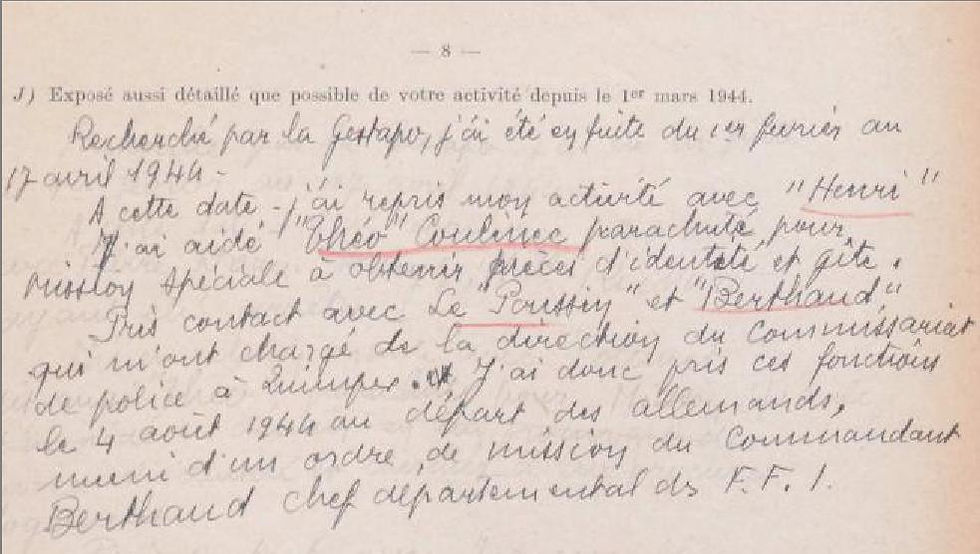 — 8 —
J) Exposé aussi détaillé que possible de votre activité depuis le 1er mars 1944.
Recherché par la Gestapo, j'ai été en fuite du 1er février au
17 avril 1944 -
A cette date - j'ai repris mon activité avec "Henri"
J'ai aidé "Théo" Coulinec parachuté pour
mission spéciale à obtenir pièces d'identité et gîte.
Pris contact avec Le "Poussin" et "Berthaud"
qui m'ont chargé de la direction du Commissariat
de police à Quimper. J'ai donc pris ces fonctions
le 4 août 1944 au départ des allemands,
muni d'un ordre de mission du Commandant
Berthaud chef départemental des F.F.I.